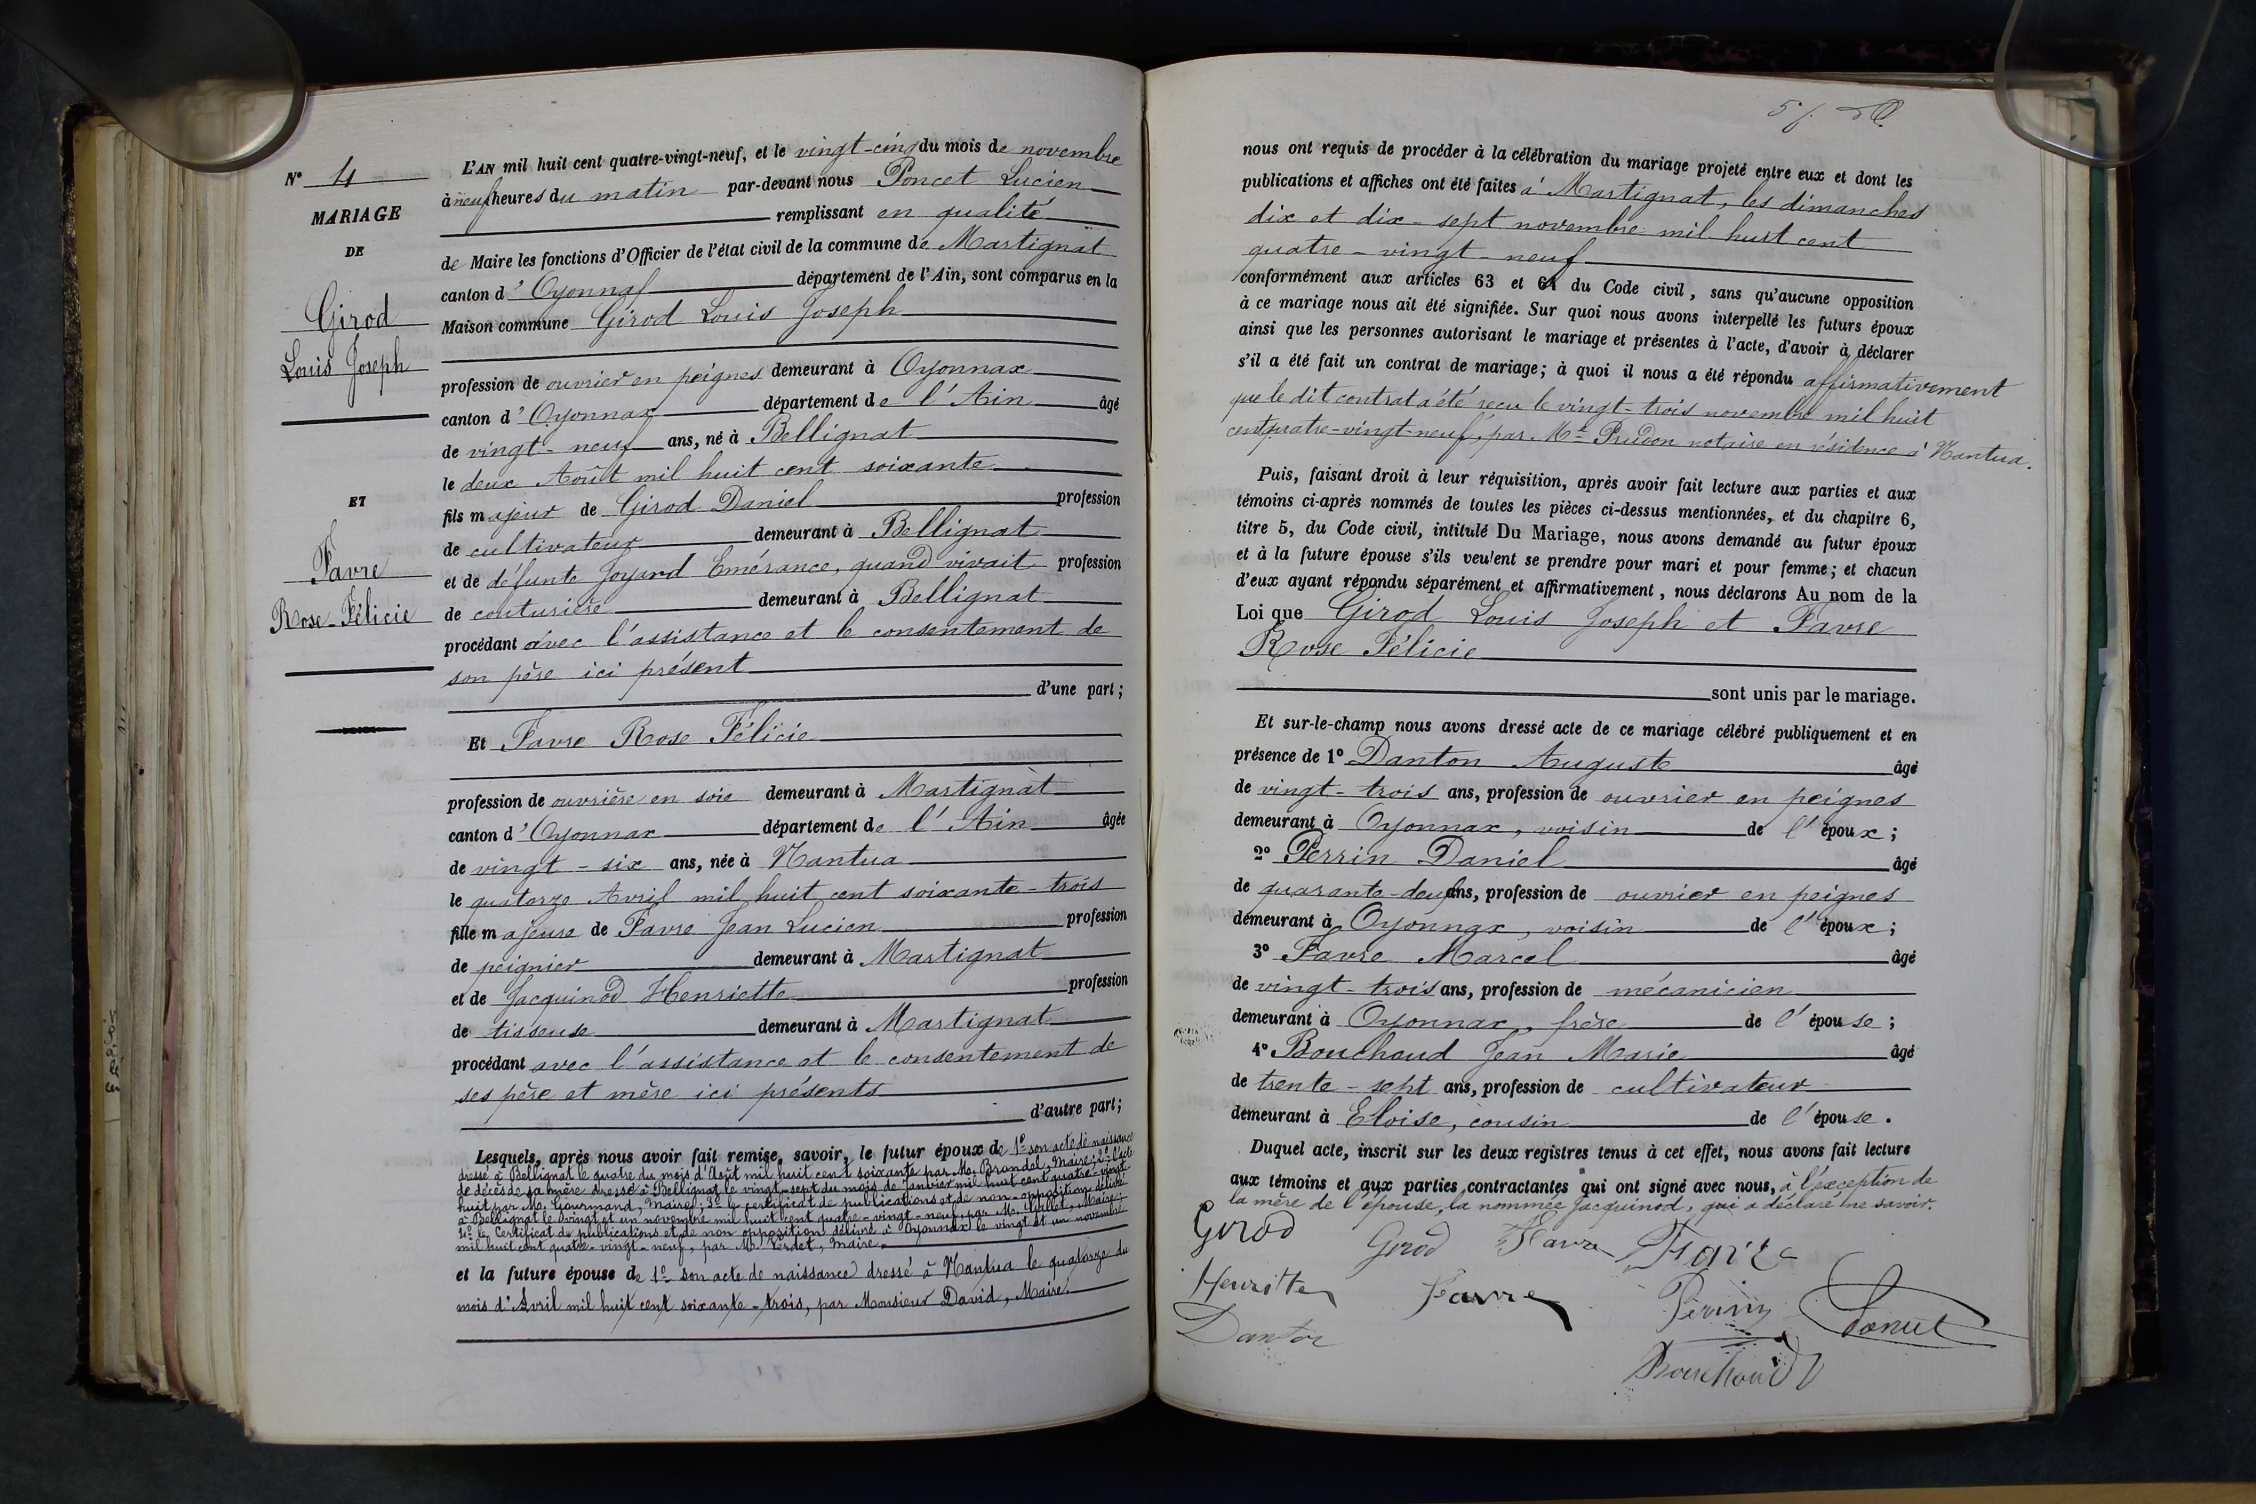 N° 4
MARIAGE
DE
Girod
Louis Joseph
ET
Favre
Rose-Félicie
L'AN mil huit cent quatre-vingt-neuf, et le vingt-cinq du mois de novembre
à neuf heures du matin par-devant nous Poncet Lucien
remplissant en qualité
de Maire les fonctions d'Officier de l'état civil de la commune de Martignat
canton d'Oyonnax département de l'Ain, sont comparus en la
Maison commune Girod Louis Joseph
profession de ouvrier en peignes demeurant à Oyonnax
canton d'Oyonnax département de l'Ain âgé
de vingt-neuf ans, né à Bellignat
le deux Août mil huit cent soixante
fils majeur de Girod Daniel profession
de cultivateur demeurant à Bellignat
et de défunte Joyard Emérance, quand vivait profession
de couturière demeurant à Bellignat
procédant avec l'assistance et le consentement de
son père ici présent
d'une part;
Et Favre Rose Félicie
profession de ouvrière en soie demeurant à Martignat
canton d'Oyonnax département de l'Ain âgée
de vingt-six ans, née à Nantua
le quatorze Avril mil huit cent soixante-trois
fille majeure de Favre Jean Lucien profession
de peignier demeurant à Martignat
et de Jacquinod Henriette profession
de tisseuse demeurant à Martignat
procédant avec l'assistance et le consentement de
ses père et mère ici présents
d'autre part;
Lesquels, après nous avoir fait remise, savoir, le futur époux de 1° son acte de naissance
dressé à Bellignat le quatre du mois d'Août mil huit cent soixante par M. Brondel, Maire; 2° l'acte
de décès de sa mère dressé à Bellignat le vingt-sept du mois de Janvier mil huit cent quatre-vingt-
huit par M. Gourmand, Maire; 3° le certificat de publications et de non-opposition délivré
à Bellignat le vingt et un novembre mil huit cent quatre-vingt-neuf, par M. Maire;
4° le Certificat de publications et de non opposition délivré à Oyonnax le vingt et un novembre
mil huit cent quatre-vingt-neuf, par M. Verdet, Maire.
et la future épouse de 1° son acte de naissance dressé à Nantua le quatorze du
mois d'Avril mil huit cent soixante-trois, par Monsieur David, Maire.
nous ont requis de procéder à la célébration du mariage projeté entre eux et dont les
publications et affiches ont été faites à Martignat, les dimanches
dix et dix-sept novembre mil huit cent
quatre-vingt-neuf
conformément aux articles 63 et 64 du Code civil, sans qu'aucune opposition
à ce mariage nous ait été signifiée. Sur quoi nous avons interpellé les futurs époux
ainsi que les personnes autorisant le mariage et présentes à l'acte, d'avoir à déclarer
s'il a été fait un contrat de mariage; à quoi il nous a été répondu affirmativement
que le dit contrat a été reçu le vingt-trois novembre mil huit
cent quatre-vingt-neuf, par Me Prudon notaire en résidence à Nantua.
Puis, faisant droit à leur réquisition, après avoir fait lecture aux parties et aux
témoins ci-après nommés de toutes les pièces ci-dessus mentionnées, et du chapitre 6,
titre 5, du Code civil, intitulé Du Mariage, nous avons demandé au futur époux
et à la future épouse s'ils veulent se prendre pour mari et pour femme; et chacun
d'eux ayant répondu séparément et affirmativement, nous déclarons Au nom de la
Loi que Girod Louis Joseph et Favre
Rose Félicie
sont unis par le mariage.
Et sur-le-champ nous avons dressé acte de ce mariage célébré publiquement et en
présence de 1° Danton Auguste âgé
de vingt-trois ans, profession de ouvrier en peignes
demeurant à Oyonnax, voisin de l'époux;
2° Perrin Daniel âgé
de quarante-deux ans, profession de ouvrier en peignes
demeurant à Oyonnax, voisin de l'époux;
3° Favre Marcel âgé
de vingt-trois ans, profession de mécanicien
demeurant à Oyonnax, frère de l'épouse;
4° Bouchaud Jean Marie âgé
de trente-sept ans, profession de cultivateur
demeurant à Eloise, cousin de l'épouse.
Duquel acte, inscrit sur les deux registres tenus à cet effet, nous avons fait lecture
aux témoins et aux parties contractantes qui ont signé avec nous, à l'exception de
la mère de l'épouse, la nommée Jacquinod, qui a déclaré ne savoir.
Girod Girod Favre Favre
Favre Perrin
Danton
Bouchoud